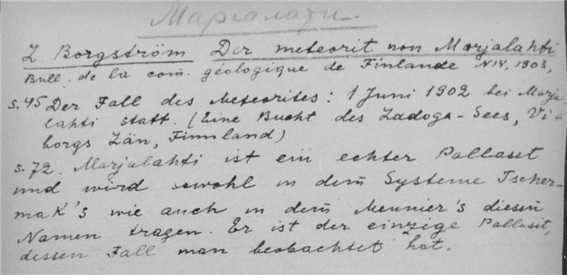 Марiалати.
L. Borgström Der meteorit von Marjalahti
Bull. de la com. géologique de Finlande N14, 1903,
s. 45 Der Fall des Meteorites: 1 Juni 1902 bei Marja
lahti statt. (Eine Bucht des Ladoga-Sees, Vi-
borgs Län, Finnland)
s. 72. Marjalahti ist ein echter Pallasit
und wird sowohl in dem Systeme Tscher-
mak's wie auch in dem Meunier's diesen
Namen tragen. Er ist der einzige Pallasit,
dessen Fall man beobachtet hat.